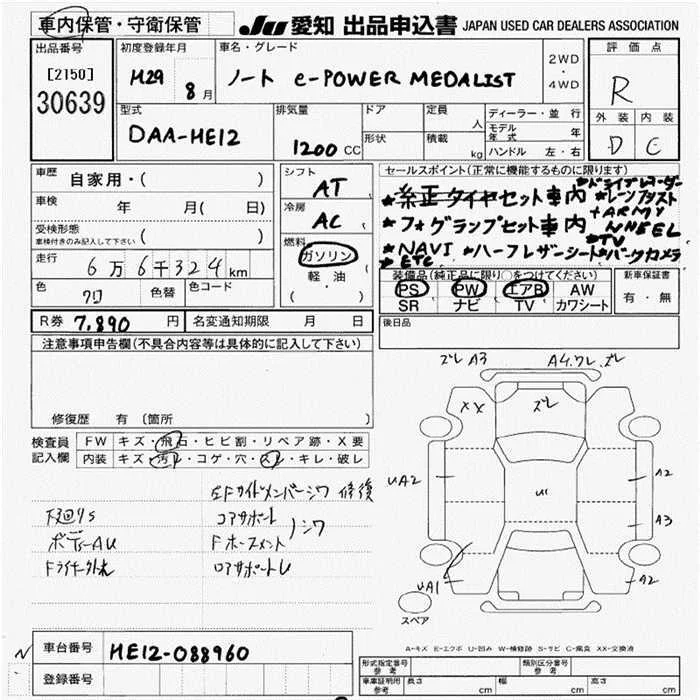 車内保管・守衛保管
JU 愛知 出品申込書 JAPAN USED CAR DEALERS ASSOCIATION
出品番号
[2150]
30639
初度登録年月
H29 8 月
車名・グレード
ノート e-POWER MEDALIST
2WD
・
4WD
評価点
R
外装 内装
D C
型式
DAA-HE12
排気量
1200 CC
ドア
形状
定員
人
積載
kg
ディーラー・並行
モデル年式 年
ハンドル 左・右
車歴
自家用・( )
車検
年 月( 日)
受検形態
車検付きのみ記入して下さい ( )
走行
6万6千324 km
色
クロ
色替
色コード
シフト
AT
冷房
AC
燃料
ガソリン
軽・油
( ・ )
セールスポイント(正常に機能するものに限ります)
★ドライブレコーダー
★糸正タイヤセット車内 ★レーンアシスト
+ARMY
★フォグランプセット車内 WHEEL
★TV
★NAVI ★ハーフレザーシート ★バックカメラ
★ETC
装備品(純正品に限り○をつけてください)
PS PW エアB AW
SR ナビ TV カワシート
新車保証書
有・無
R券 7,890 円
名変通知期限 月 日
後日品
注意事項申告欄(不具合内容等は具体的に記入して下さい)
修復歴 有 (箇所 )
検査員
記入欄
FW キズ・飛石・ヒビ割・リペア跡・X要
内装 キズ・汚レ・コゲ・穴・スレ・キレ・破レ
左Fサイドメンバーシワ 修復
下廻りS コアサポート
シワ
ボディーAU
ロアサポートU
ズレ A3
A4.ワレ.ズレ
XX
ズレ
UA2
A2
A3
UA1
A2
スペア
A-キズ E-エクボ U-凹み W-補修跡 S-サビ C-腐食 XX-交換済
車台番号
HE12-088960
登録番号
形式指定番号 参考
類別区分番号 参考
車庫証明用 参考
長さ cm
幅 cm
高さ cm